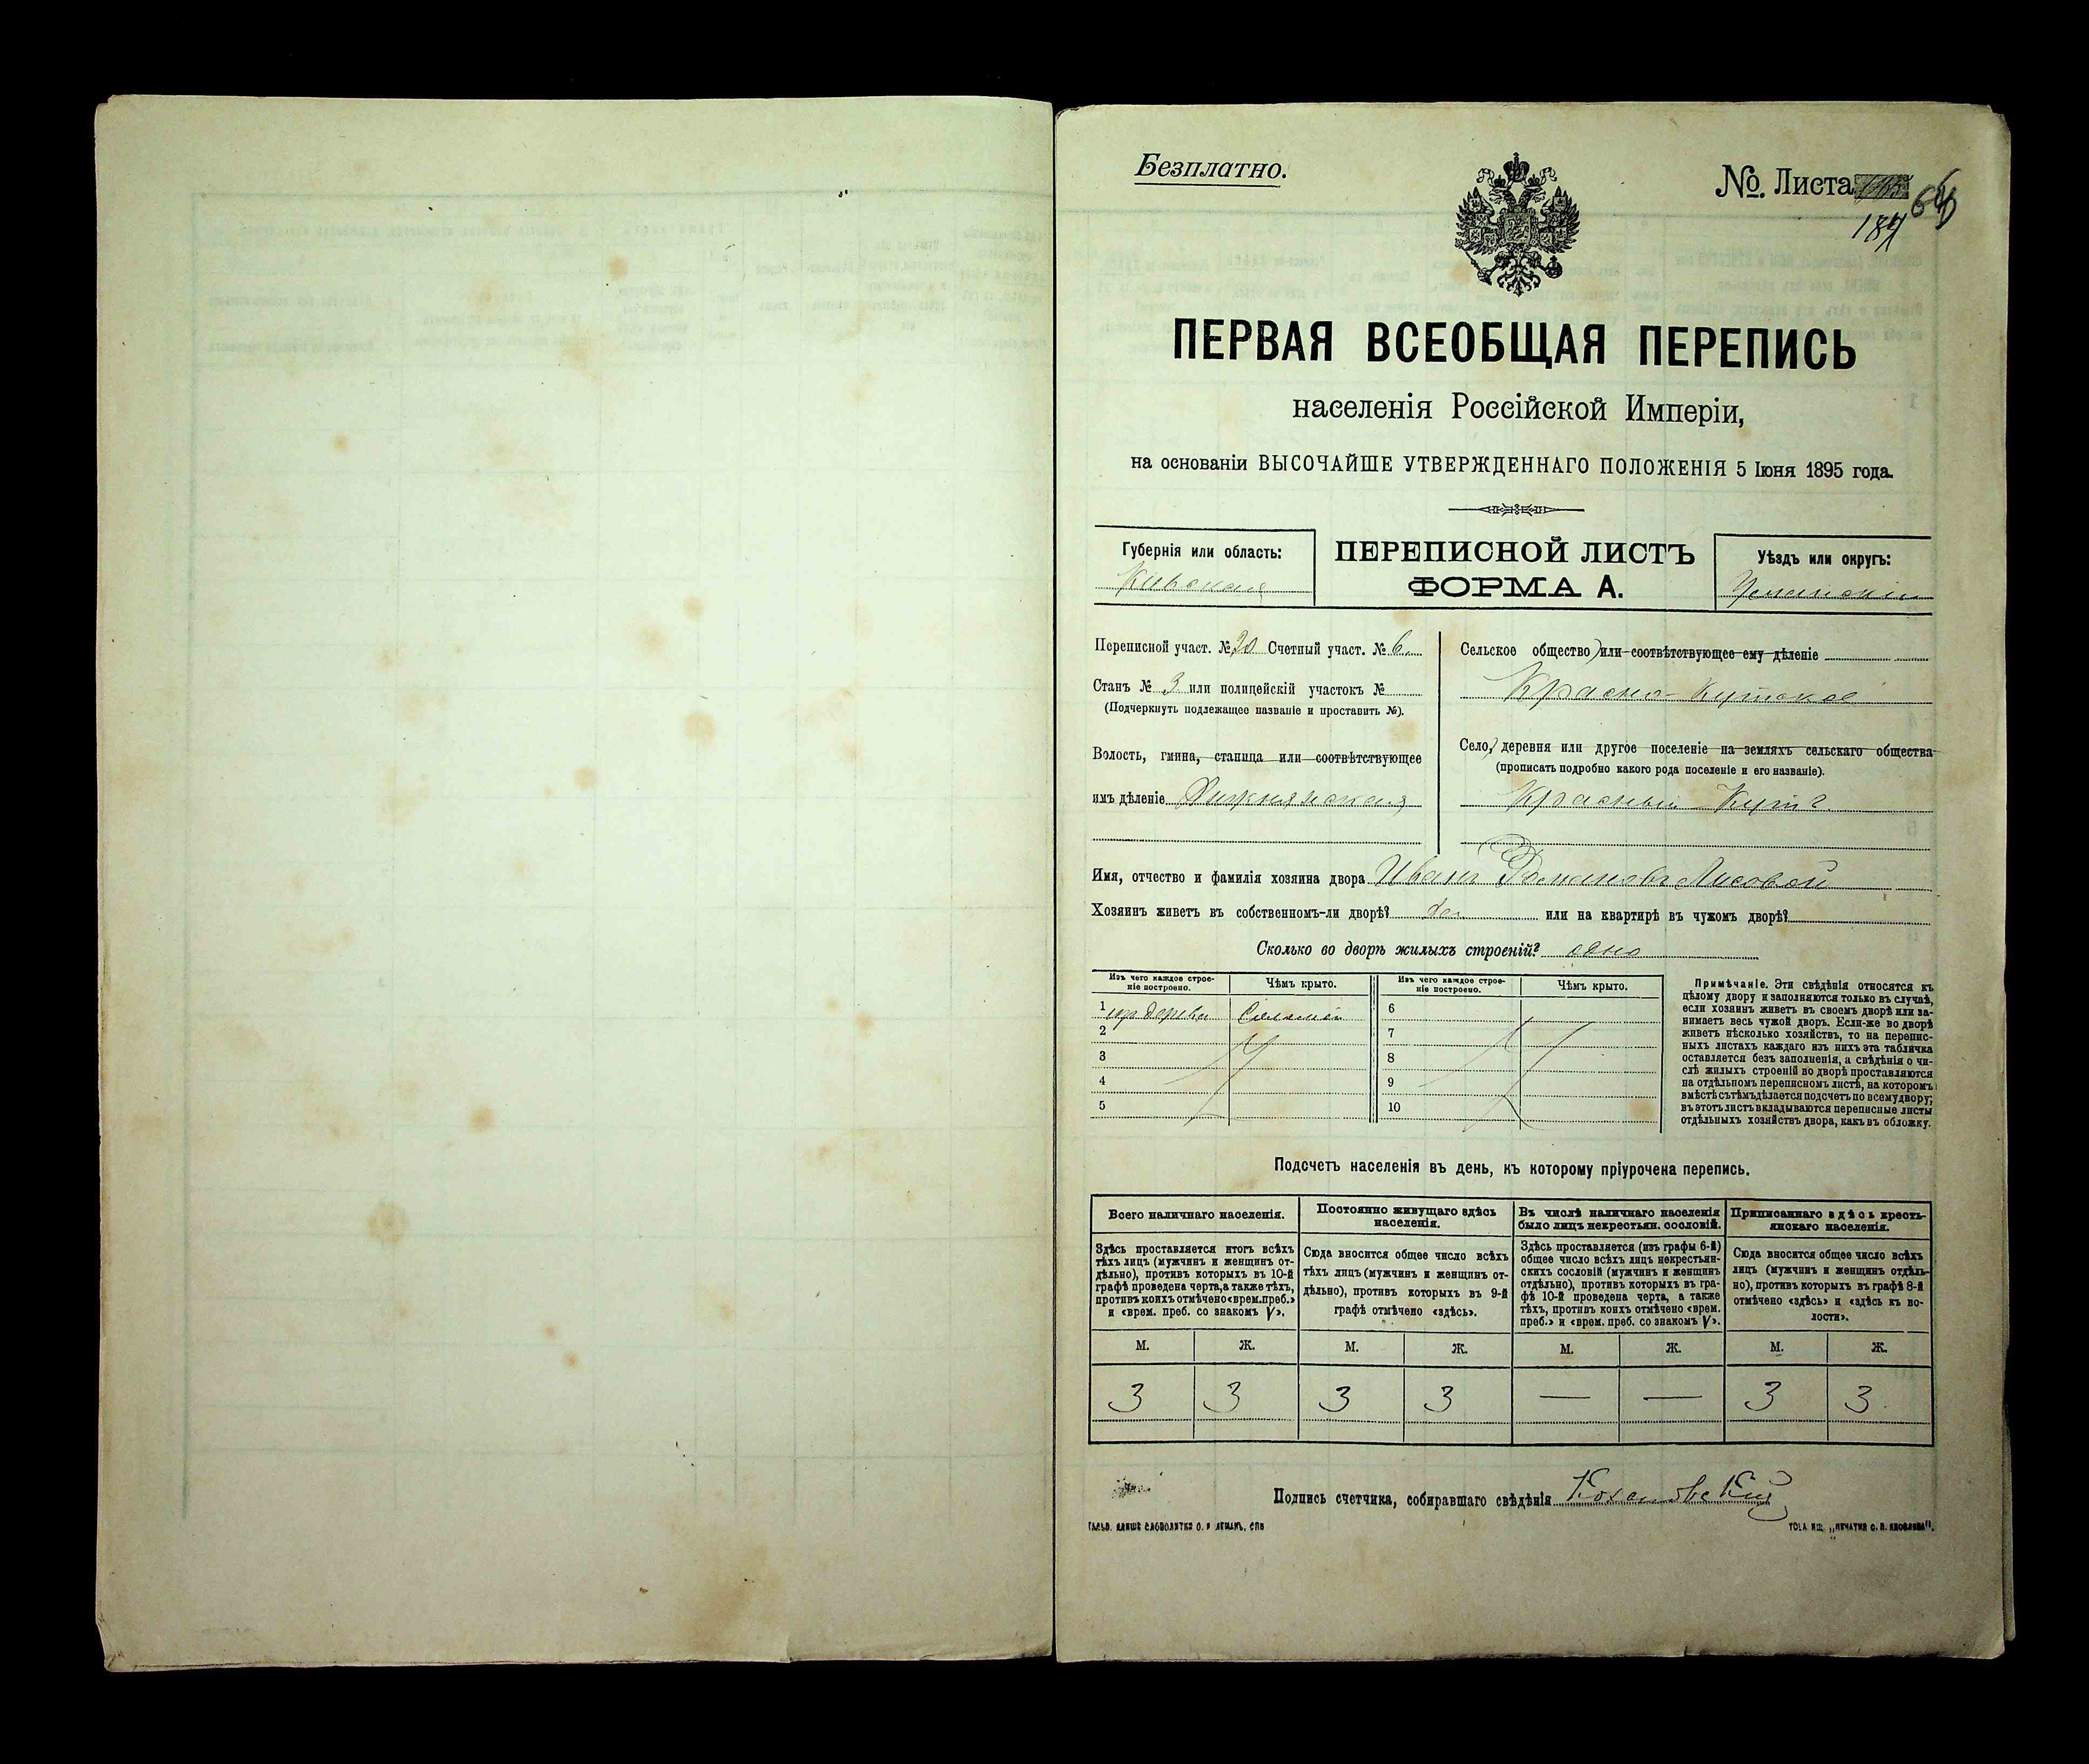 Безплатно.
№ Листа
184
ПЕРВАЯ ВСЕОБЩАЯ ПЕРЕПИСЬ
населенія Россійской Имперіи,
на основаніи ВЫСОЧАЙШЕ УТВЕРЖДЕННАГО ПОЛОЖЕНІЯ 5 Іюня 1895 года.
Губернія или область:
Кіевская
ПЕРЕПИСНОЙ ЛИСТЪ
ФОРМА А.
Уѣздъ или округъ:
Уманскій
Переписной участ. № 20 Счетный участ. № 6.
Станъ № 3 или полицейскій участокъ №
(Подчеркнуть подлежащее названіе и проставить №).
Волость, гмина, станица или соотвѣтствующее
имъ дѣленіе
Сельское общество) или соотвѣтствующее ему дѣленіе
Красно-Кутское
Село, деревня или другое поселеніе на земляхъ сельскаго общества
(прописать подробно какого рода поселеніе и его названіе).
Красный-Кутъ
Имя, отчество и фамилія хозяина двора Иванъ Романовъ Лисовой
Хозяинъ живетъ въ собственномъ-ли дворѣ? да или на квартирѣ въ чужомъ дворѣ?
Сколько во дворѣ жилыхъ строеній? одно
Изъ чего каждое строе-
ніе построено.
Чѣмъ крыто.
Изъ чего каждое строе-
ніе построено.
Чѣмъ крыто.
1 изъ дерева Соломой
2
3
4
5
6
7
8
9
10
Примѣчаніе. Эти свѣдѣнія относятся къ
цѣлому двору и заполняются только въ случаѣ,
если хозяинъ живетъ въ своемъ дворѣ или за-
нимаетъ весь чужой дворъ. Если-же во дворѣ
живетъ нѣсколько хозяйствъ, то на перепис-
ныхъ листахъ каждаго изъ нихъ эта табличка
оставляется безъ заполненія, а свѣдѣнія о чи-
слѣ жилыхъ строеній во дворѣ проставляются
на отдѣльномъ переписномъ листѣ, на которомъ
вмѣстѣ съ тѣмъ дѣлается подсчетъ по всему двору;
въ этотъ листъ вкладываются переписные листы
отдѣльныхъ хозяйствъ двора, какъ въ обложку.
Подсчетъ населенія въ день, къ которому пріурочена перепись.
Всего наличнаго населенія.
Здѣсь проставляется итогъ всѣхъ
тѣхъ лицъ (мужчинъ и женщинъ от-
дѣльно), противъ которыхъ въ 10-й
графѣ проведена черта, а также тѣхъ,
противъ коихъ отмѣчено «врем. преб.»
и «врем. преб. со знакомъ V».
Постоянно живущаго здѣсь
населенія.
Сюда вносится общее число всѣхъ
тѣхъ лицъ (мужчинъ и женщинъ от-
дѣльно), противъ которыхъ въ 9-й
графѣ отмѣчено «здѣсь».
Въ числѣ наличнаго населенія
было лицъ некрестьян. сословій.
Здѣсь проставляется (изъ графы 6-й)
общее число всѣхъ лицъ некрестьян-
скихъ сословій (мужчинъ и женщинъ
отдѣльно), противъ которыхъ въ гра-
фѣ 10-й проведена черта, а также
тѣхъ, противъ коихъ отмѣчено «врем.
преб.» и «врем. преб. со знакомъ V».
Приписаннаго здѣсь кресть-
янскаго населенія.
Сюда вносится общее число всѣхъ
лицъ (мужчинъ и женщинъ отдѣль-
но), противъ которыхъ въ графѣ 8-й
отмѣчено «здѣсь» и «здѣсь къ во-
лости».
М. Ж. М. Ж. М. Ж. М. Ж.
3 3 3 3 — — 3 3
Подпись счетчика, собиравшаго свѣдѣнія Кохановскій